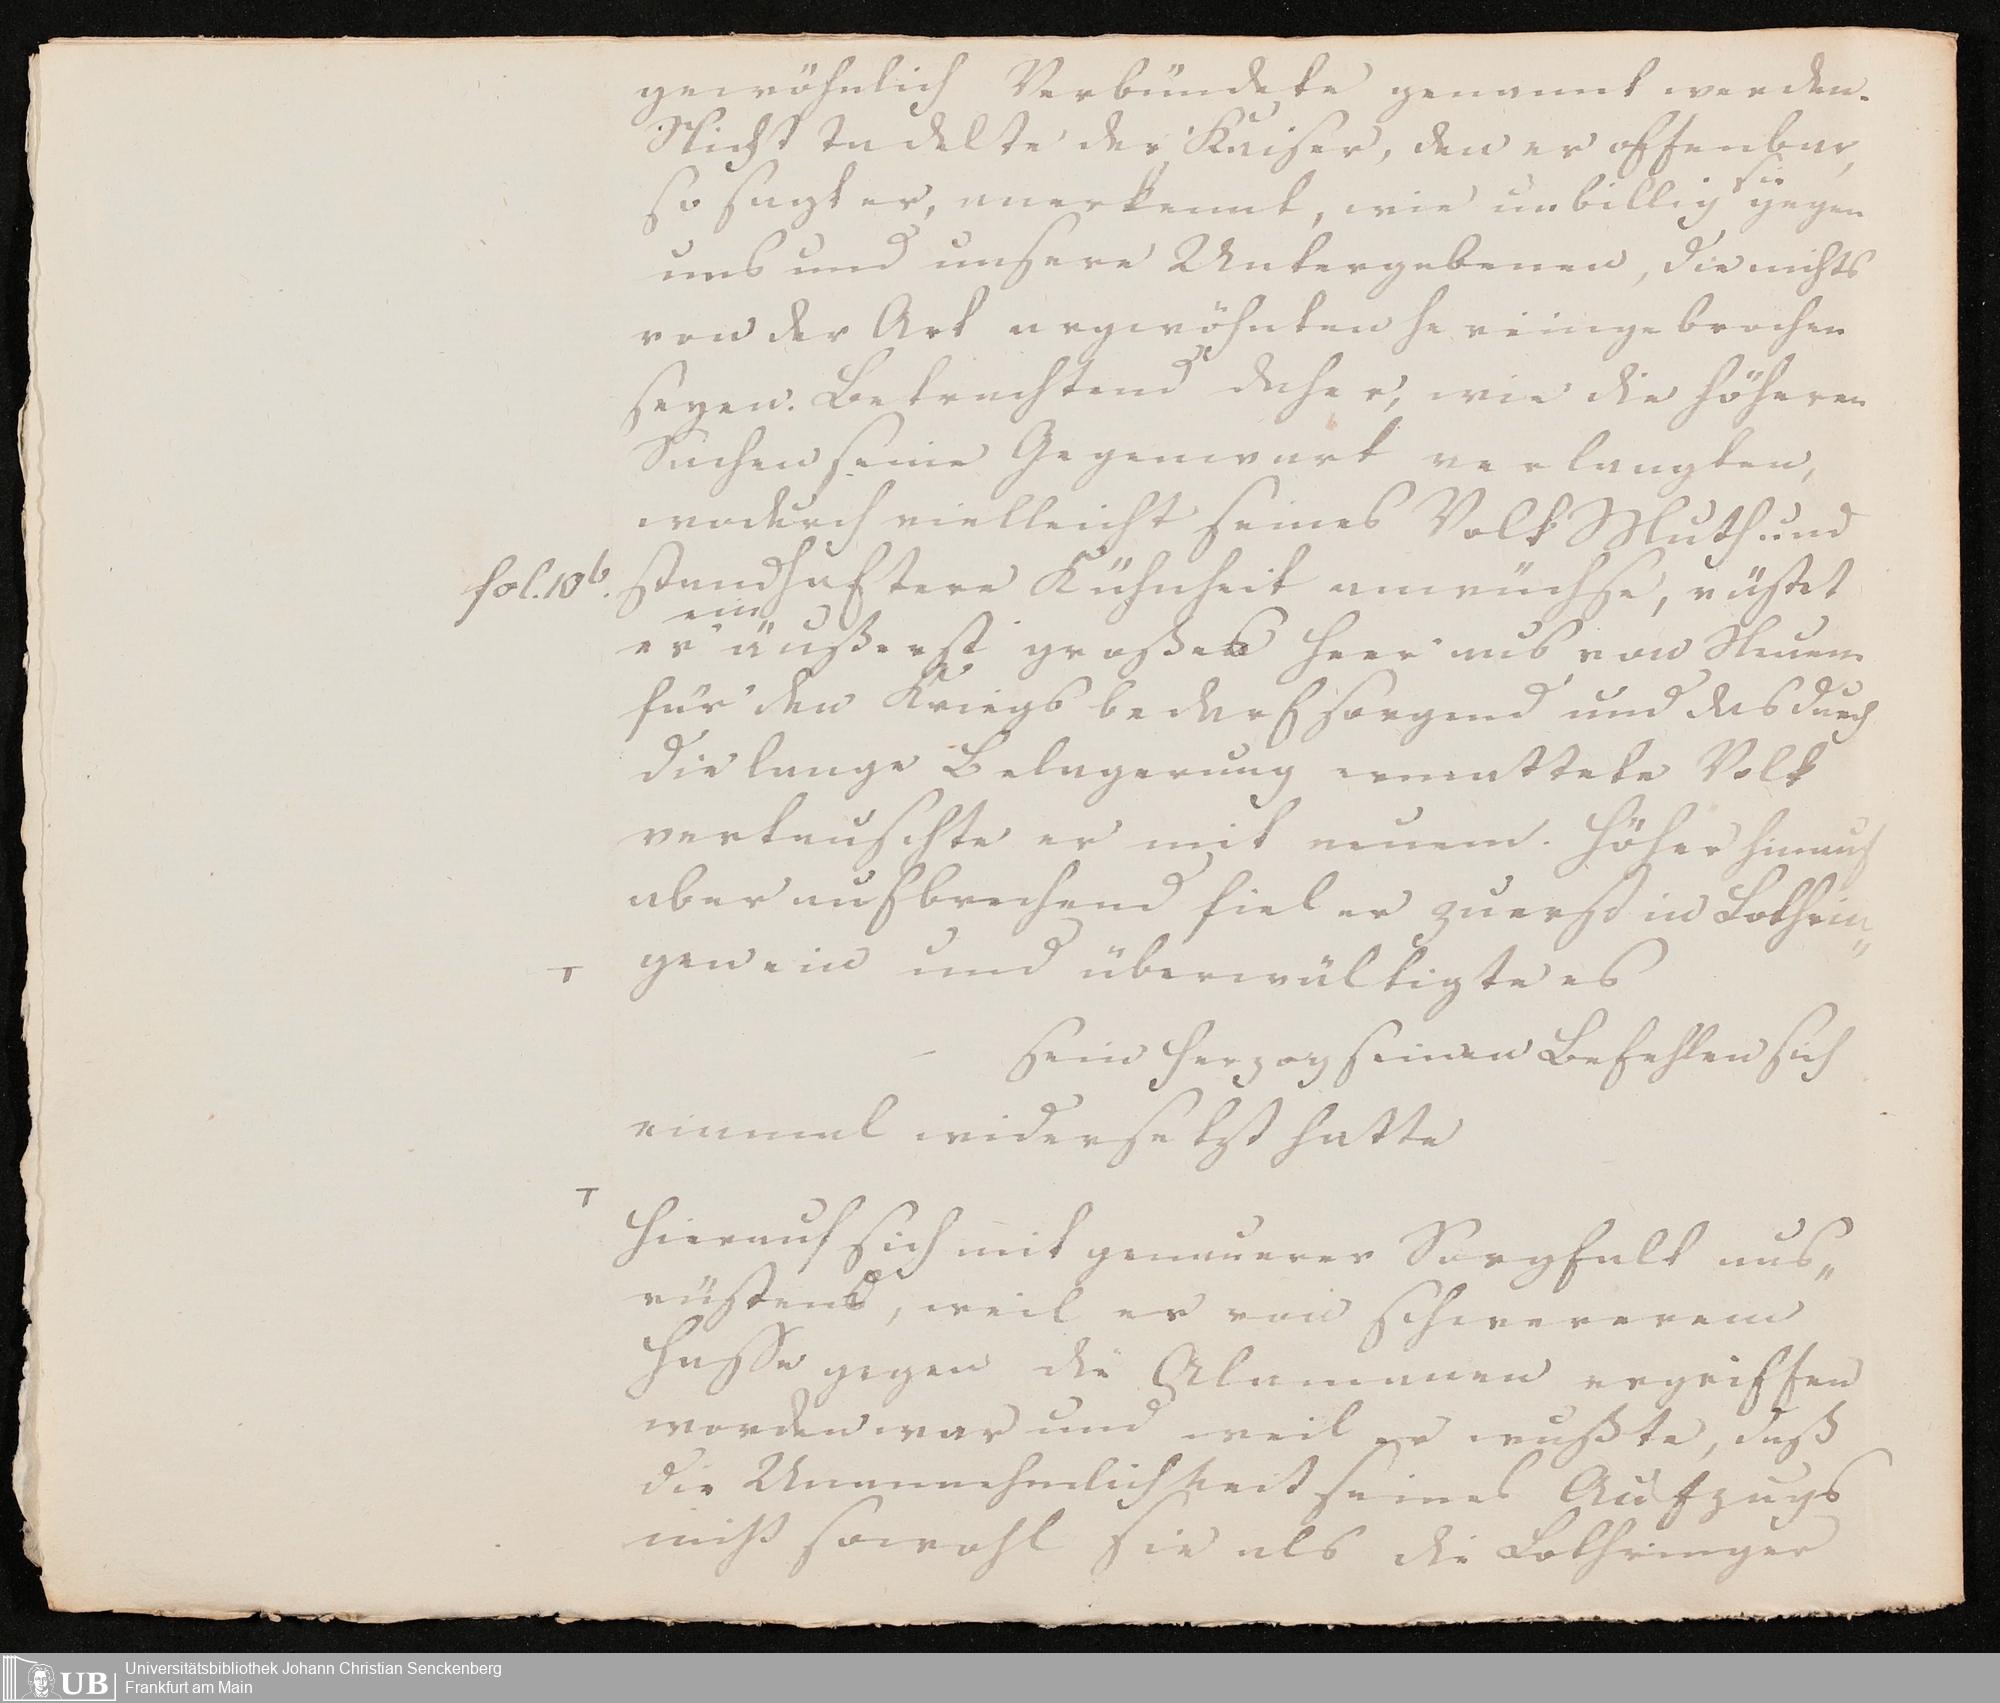 gewöhnlich Verbündete genannt werden.
Nicht tadelte der Kaiser, den er offenbar,
so sagt er, anerkennt, wie unbillig sie gegen
uns und unsere Untergebenen, die nichts
von der Art argwöhnten hereingebrochen
seyen. Betrachtend daher, wie die höheren
Sachen seine Gegenwart verlangten,
wodurch vielleicht seines Volk Muth und
fol. 10b. standhaftere Kühnheit anwüchse, rüstet
er ein äußerst großes Heer aus, von Neuem
für den Kriegsbedarf sorgend und das durch
die lange Belagerung ermattete Volk
vertauschte er mit neuem. Höher hinauf
aber aufbrechend fiel er zuerst in Lothrin„
T gen ein und überwältigte es
sein Herzog seinen Befehlen sich
einmal widersetzt hatte
T
Hierauf sich mit genauerer Sorgfalt aus„
rüstend, weil er von schwererem
Hasse gegen die Alamanen ergriffen
worden war und weil er wußte, daß
die Unannehmlichkeit seines Aufzugs
nicht sowohl sie als die Lothringer
UB Universitätsbibliothek Johann Christian Senckenberg
Frankfurt am Main